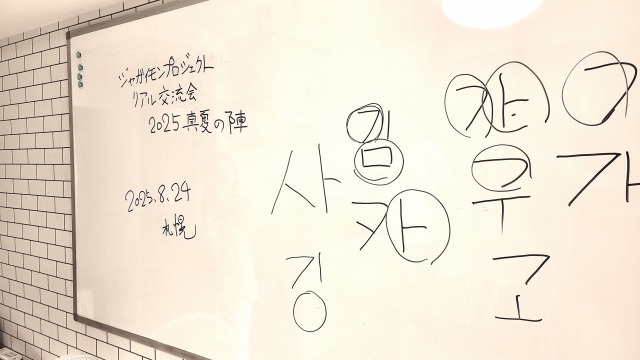 ジャガイモンプロジェクト
リアル交流会
2025 真夏の陣
2025.8.24
札幌
김
사
카
가
고